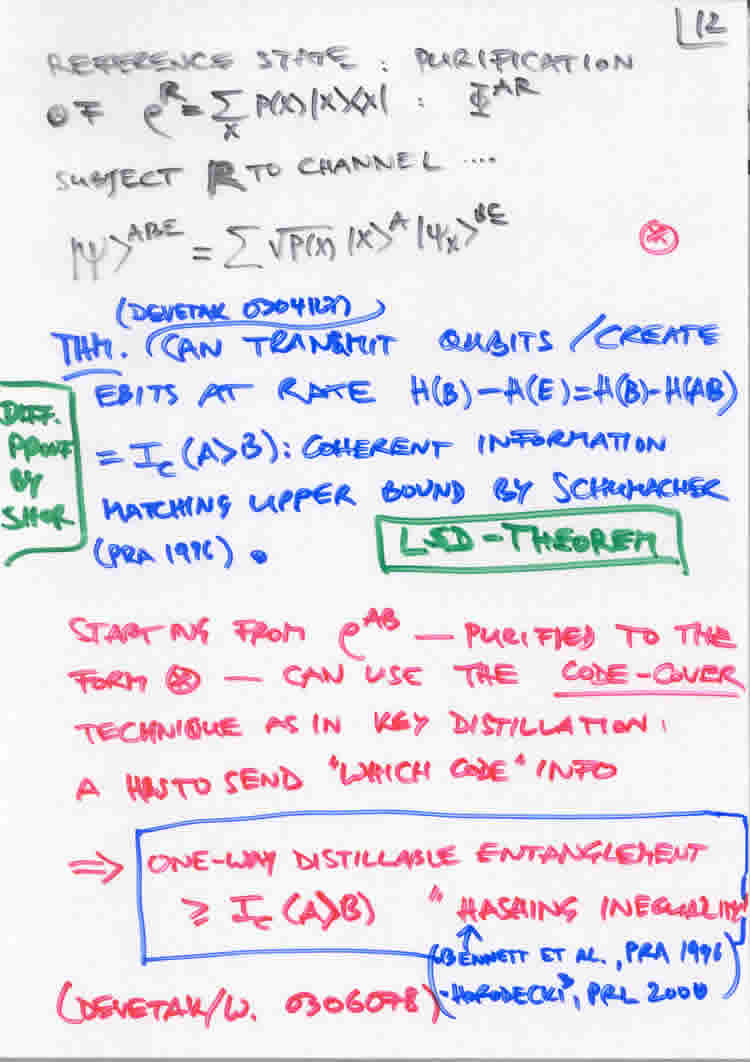 12
REFERENCE STATE : PURIFICATION
OF ρ^R = ∑_x P(x)|x⟩⟨x| : Φ^AR
SUBJECT R TO CHANNEL ....
|ψ⟩^ABE = ∑ √P(x) |x⟩^A |ψ_x⟩^BE ⊛
(DEVETAK 0304127)
THM. CAN TRANSMIT QUBITS / CREATE
EBITS AT RATE H(B)-H(E)=H(B)-H(AB)
= I_c(A>B): COHERENT INFORMATION
MATCHING UPPER BOUND BY SCHUMACHER
(PRA 1996).
DIFF.
PROOF
BY
SHOR
LSD-THEOREM
STARTING FROM ρ^AB — PURIFIED TO THE
FORM ⊛ — CAN USE THE CODE-COVER
TECHNIQUE AS IN KEY DISTILLATION:
A HAS TO SEND "WHICH CODE" INFO
⇒ ONE-WAY DISTILLABLE ENTANGLEMENT
≥ I_c(A>B) "HASHING INEQUALITY
(BENNETT ET AL., PRA 1996
-HORODECKI³, PRL 2000)
(DEVETAK/W. 0306078)